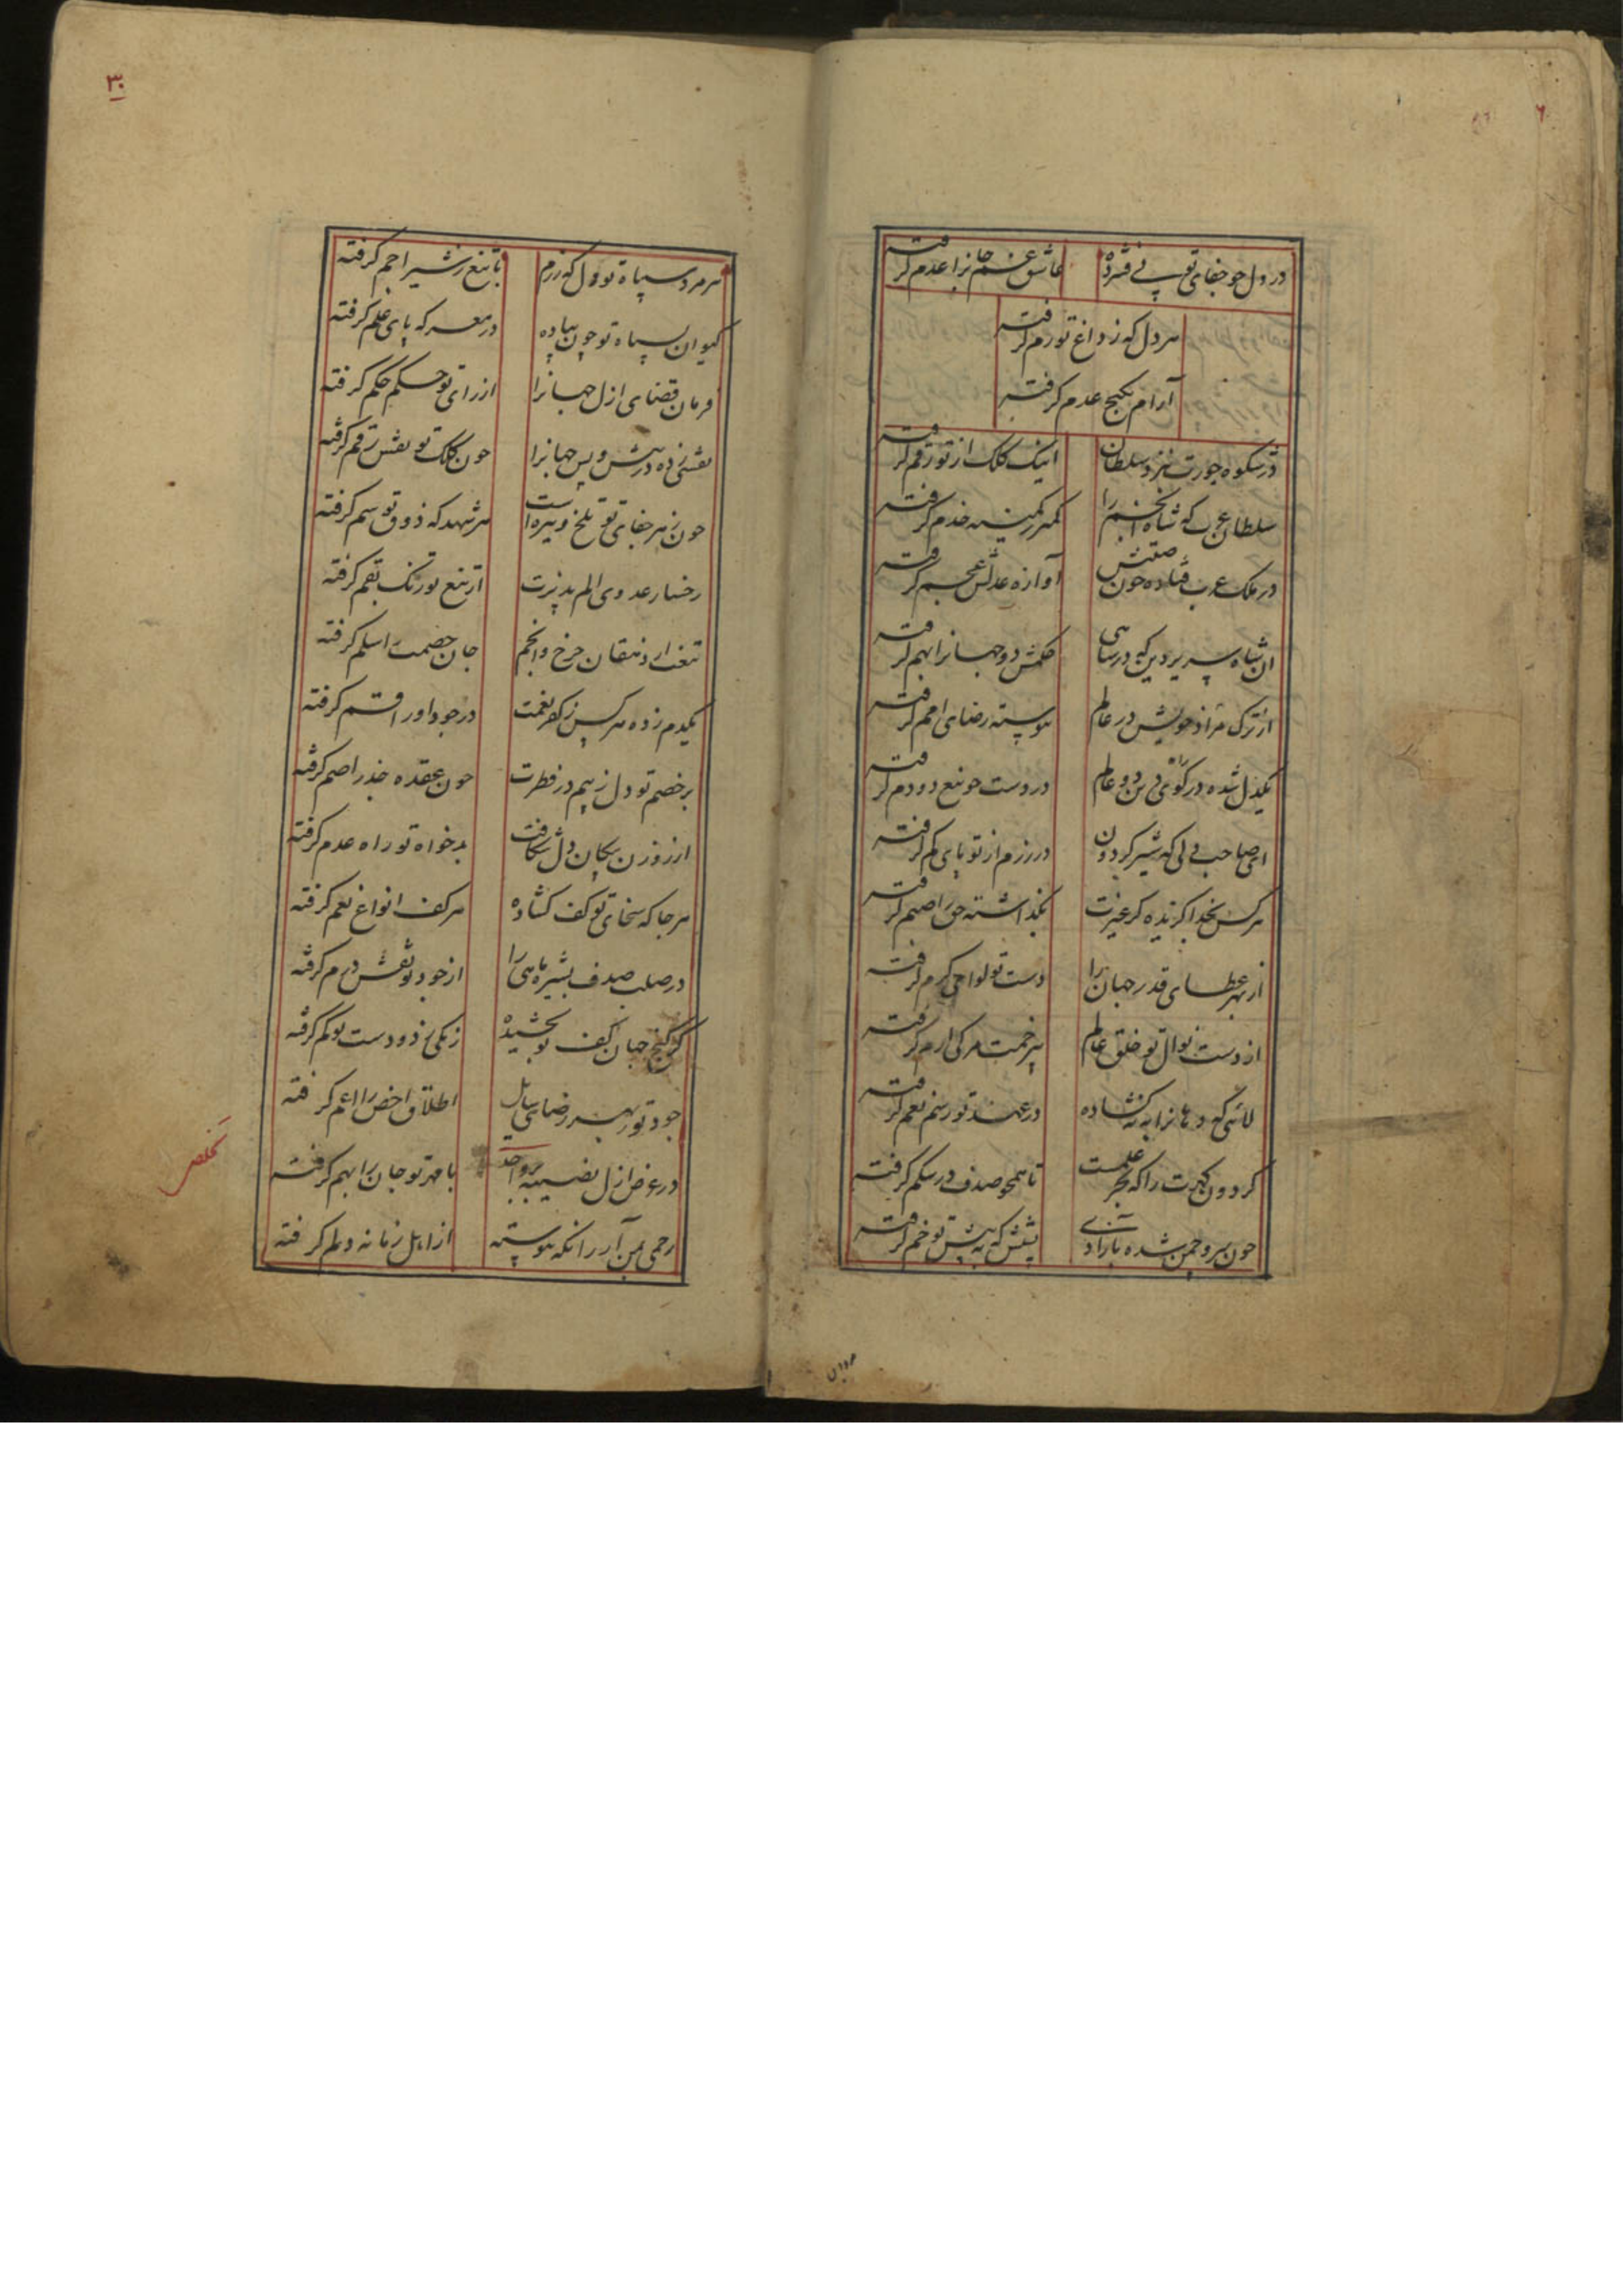 ۶
در دل چو جفای تو پی فشرده عاشق غم جانرا عدم گرفته
هر دل که ز داغ تو رم گرفته
آرام بکنج عدم گرفته
در شکوه جورت بنزد سلطان اینک کلک از تو رقم گرفته
سلطان عرب که شاه انجم را کمتر ز کمینه خدم گرفته
در ملک عرب فتاده چون صیتش آوازه عدلش عجم گرفته
آن شاه سریر دین که در شاهی حکمش دو جهانرا بهم گرفته
از ترک مراد خویش در عالم پیوسته رضای امم گرفته
یکدل شده در کوی دین دو عالم در دست چو تیغ دو دم گرفته
ای صاحب دلی که شیر گردون در رزم از تو پای کم گرفته
هر کس بخدا گزیده گر غیرت بگذاشته حق را صنم گرفته
از بهر عطای قدر جهان را دست تو لوای کرم گرفته
از دست نوال تو خلق عالم
لائی که دهانرا به نه گشاده در عهد تو رسم نعم گرفته
گردون گهرت را که بحر علمست تا همچو صدف در شکم گرفته
چون سرو چمن شده بازادی پشتش که به پیش تو خم گرفته
۳۰
هر مرد سپاه تو دل که رزم با تیغ ز شیر اجم گرفته
کیوان سپاه تو چون پیاده در معرکه پای علم گرفته
فرمان قضای ازل جهانرا از رای تو حکم حکم گرفته
نقشی زده در پیش و پس جهانرا چون کلک تو نقش رقم گرفته
چون زهر جفای تو تلخ و تیره است هر شهد که ذوق تو سم گرفته
رخسار عدوی الم پذیرت از تیغ تو رنگ بقم گرفته
جان خصمت را سلم گرفته
یکدم زده هر کس ز کفر نعمت در جود او را قسم گرفته
بر خصم تو دل ز بیم در فطرت چون عقده جذر اصم گرفته
از روزن پیکان دل شکافت بدخواه تو راه عدم گرفته
هر جا که سخای تو کف گشاده هر کف انواع نعم گرفته
در صلب صدف بشیره ماهی را از جود تو نقش درم گرفته
گر گنج جهان کف تو بخشیده
جود تو بهر رضای سایل اطلاق اخص را اعم گرفته
در عرض ازل نصیبه هر واحد با مهر تو جان را بهم گرفته
رحمی بمن آر زانکه پیوسته از اهل زمانه دلم گرفته
تخلص